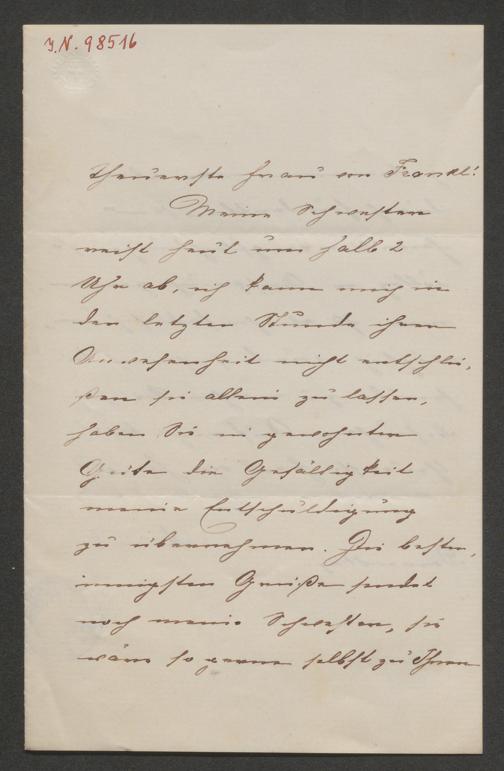 J.N. 98516
Theuerste Frau von Frankl!
Meine Schwester
reist heut um halb 2
Uhr ab, ich kann mich in
den letzten Stunde ihrer
Anwesenheit nicht entschlie,
ßen sie allein zu lassen,
haben Sie in gewohnter
Güite die Gefälligkeit
meine Entschuldigung
zu übernehmen. Die besten,
innigsten Grüße sendet
noch meine Schwester, sie
wäre so gerne selbst zu Ihnen